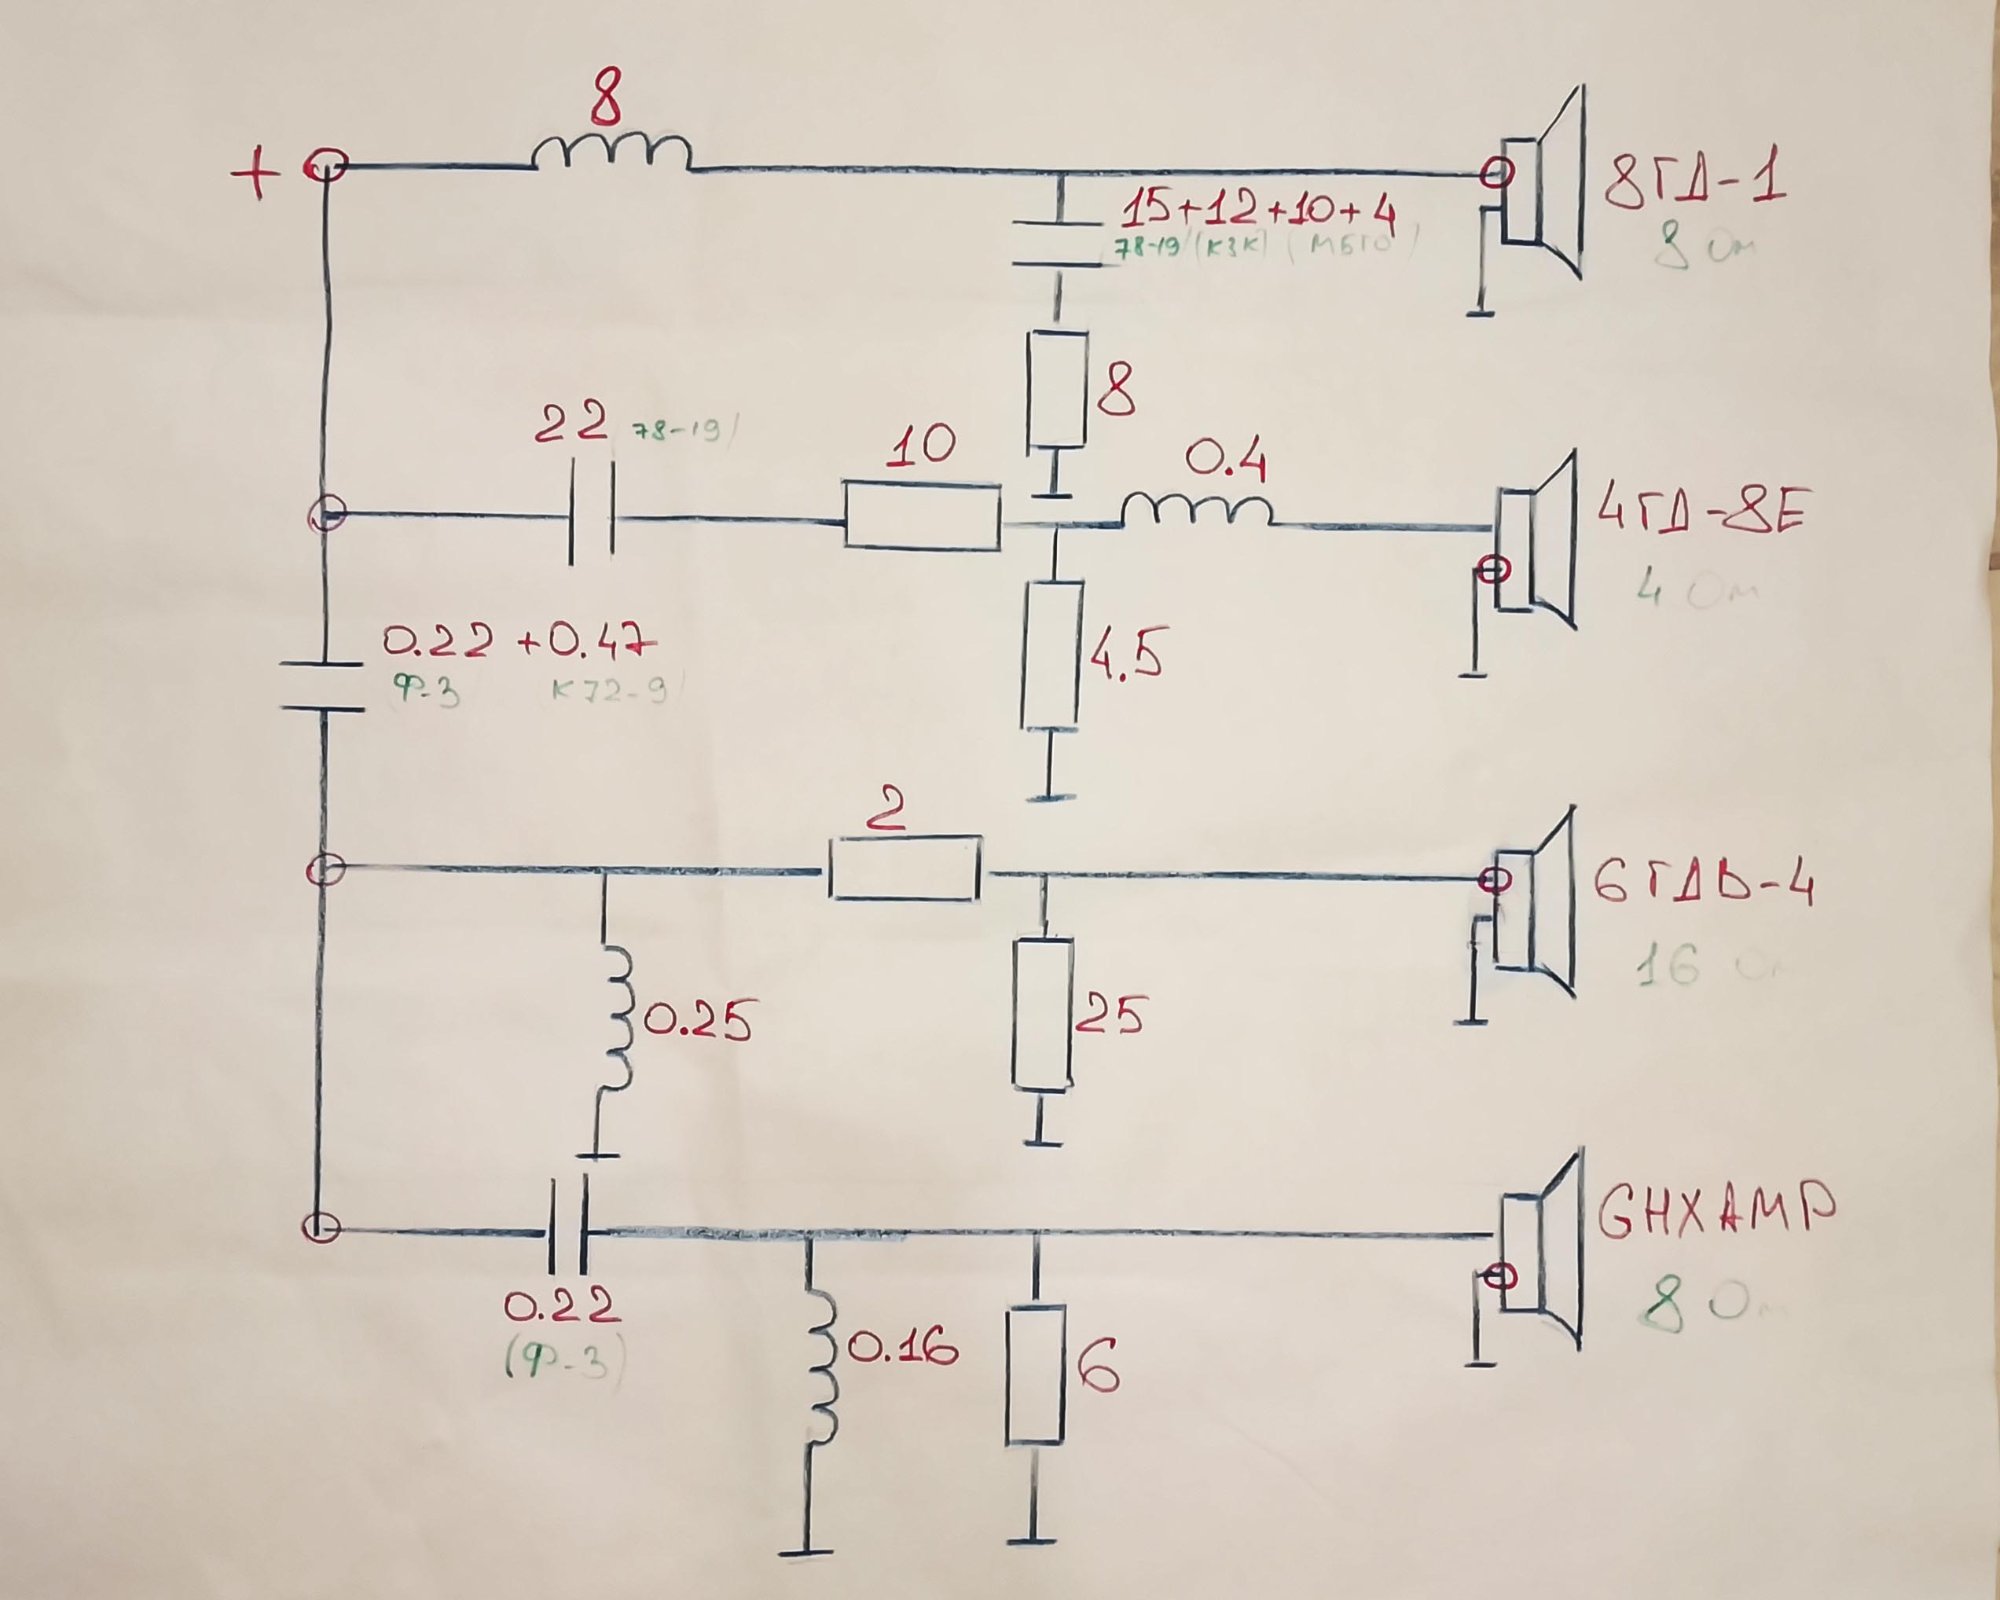 8
+
15+12+10+4
8ГД-1
78-19 (К3К) (МБГО)
8 Ом
8
22 78-19
10
0.4
4ГД-8Е
4 Ом
0.22 +0.47
Ф-3 К72-9
4.5
2
6ГДВ-4
16 Ом
0.25
25
GHXAMP
8 Ом
0.22
(Ф-3)
0.16
6